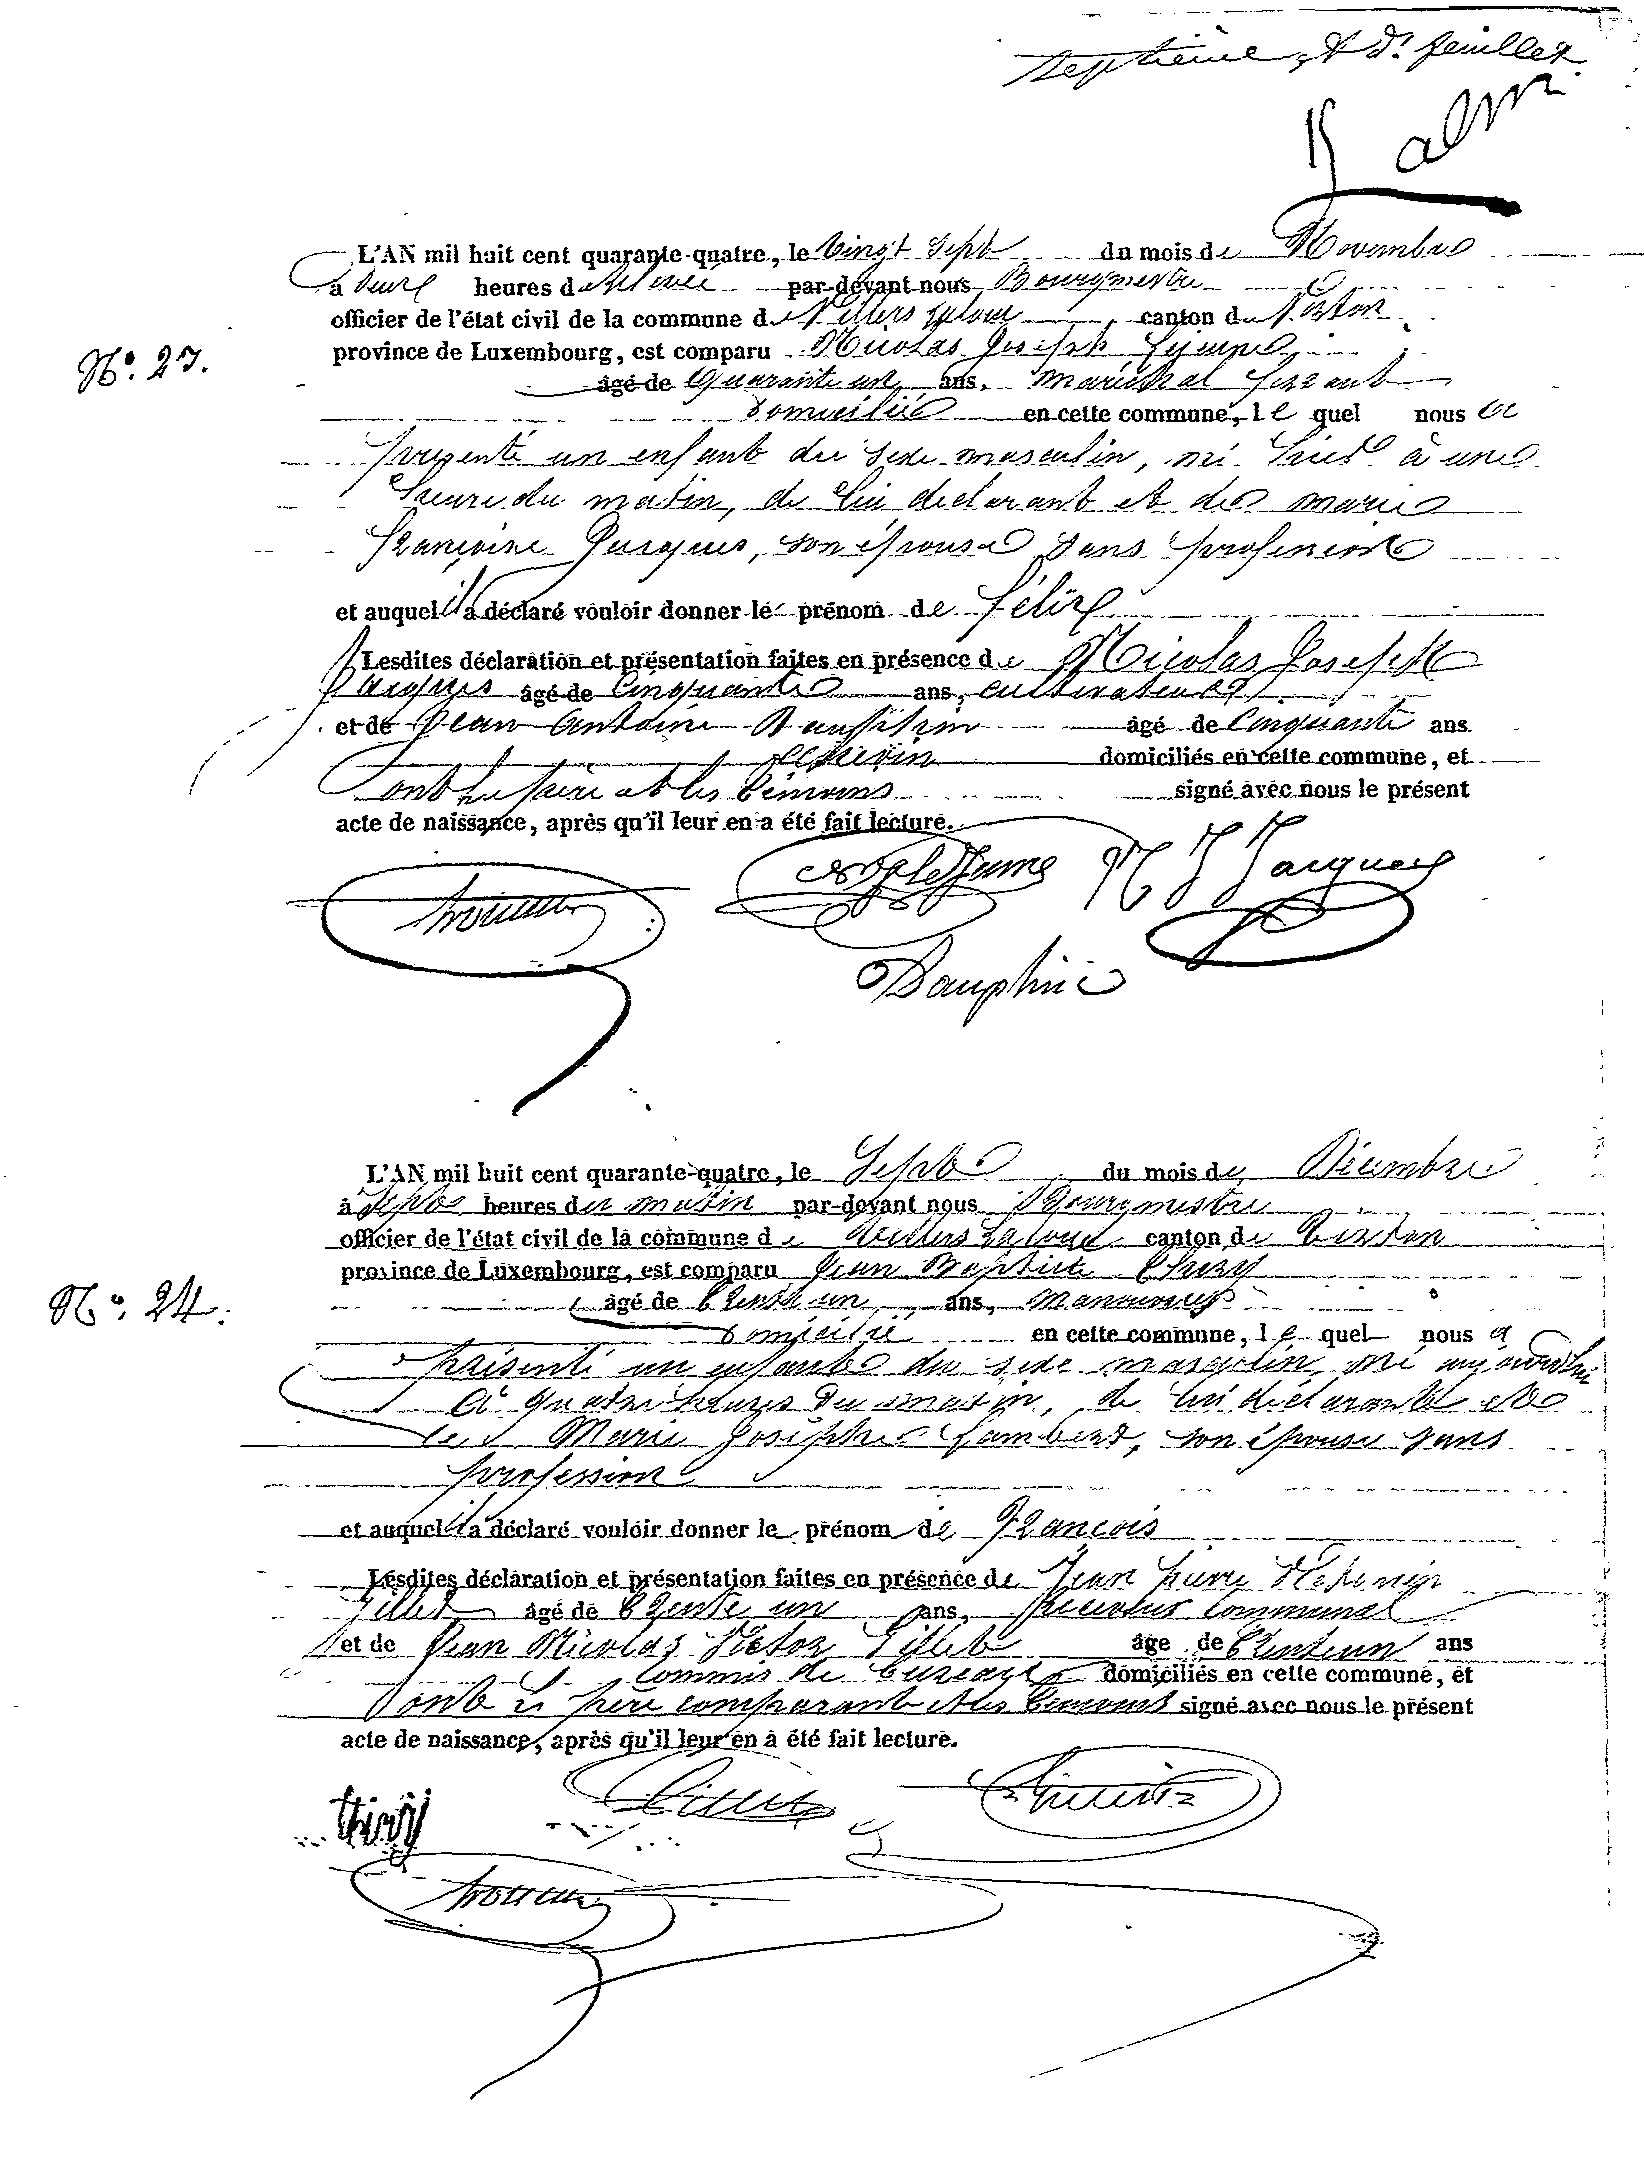 Septième et dr. feuillet
N°. 23.
L'AN mil huit cent quarante-quatre, le Vingt Sept du mois de Novembre
à deux heures de Relevée par-devant nous Bourgmestre
officier de l'état civil de la commune de Villers Laloue canton de Virton
province de Luxembourg, est comparu Nicolas Joseph
âgé de Quarante un ans, maréchal ferrant
domicilié en cette commune, le quel nous a
présenté un enfant du sexe masculin, né hier à une
heure du matin, de lui déclarant et de marie
françoise Jacques, son épouse sans profession
et auquel il a déclaré vouloir donner le prénom de Félix
Lesdites déclaration et présentation faites en présence de Nicolas Joseph
Jacques âgé de Cinquante ans, cultivateur
et de Jean Antoine Dauphin âgé de Cinquante ans
Echevin domiciliés en cette commune, et
ont le père et les témoins signé avec nous le présent
acte de naissance, après qu'il leur en a été fait lecture.
N J Jacques
Dauphin
N°. 24.
L'AN mil huit cent quarante-quatre, le Sept du mois de Décembre
à Sept heures du matin par-devant nous Bourgmestre
officier de l'état civil de la commune de Villers Laloue canton de Virton
province de Luxembourg, est comparu Jean Baptiste Thiry
âgé de trente un ans, manouvrier
domicilié en cette commune, le quel nous a
présenté un enfant du sexe masculin né aujourdhui
à quatre heures du matin, de lui déclarant et
de Marie Josephe Lambert, son épouse sans
profession
et auquel il a déclaré vouloir donner le prénom de François
Lesdites déclaration et présentation faites en présence de Jean pierre
Gillet âgé de trente un ans, receveur communal
et de Jean Nicolas Victor Gillet âgé de trente un ans
commis de bureau domiciliés en cette commune, et
ont le père comparant et les témoins signé avec nous le présent
acte de naissance, après qu'il leur en a été fait lecture.
Thiry